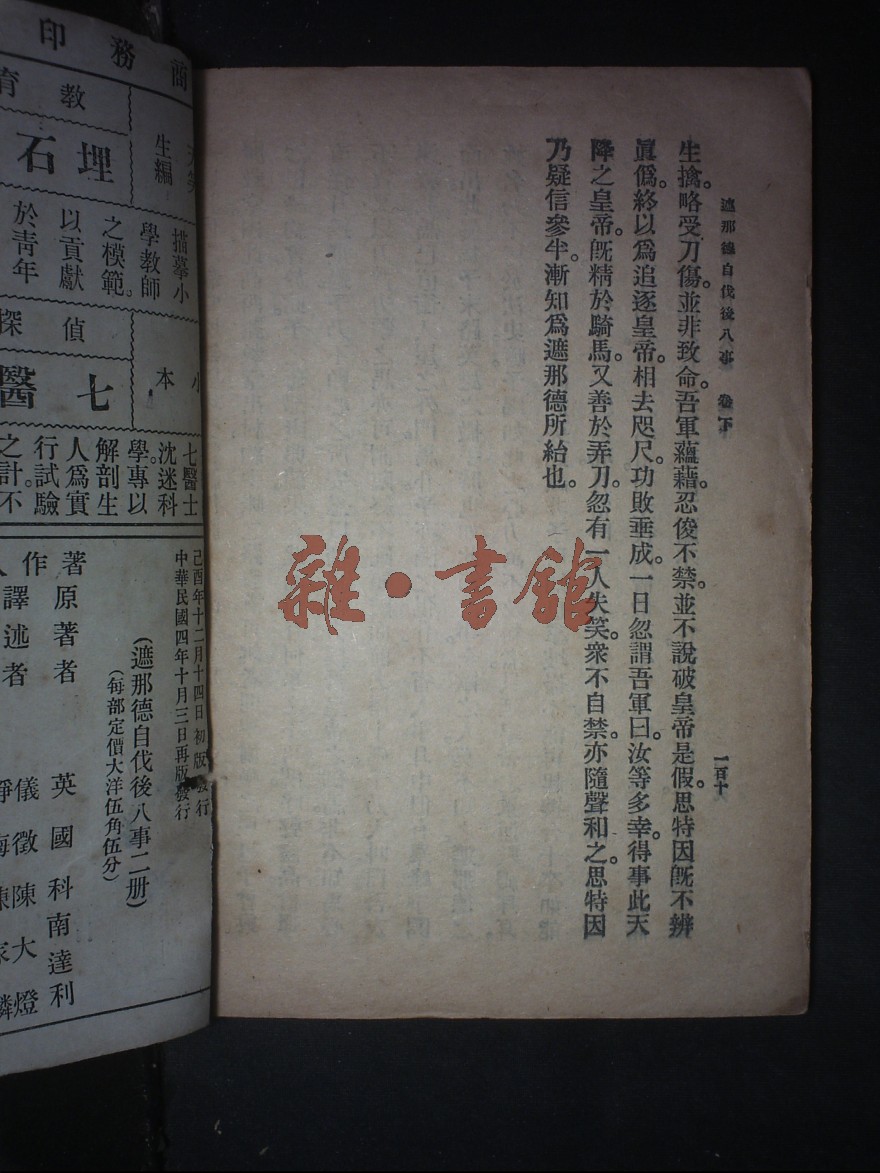 遮那德自伐後八事 卷下
一百十
生擒。略受刀傷。並非致命。吾軍蘊藉。忍俊不禁。並不說破皇帝是假。思特因旣不辨
眞僞。終以爲追逐皇帝。相去咫尺。功敗垂成。一日忽謂吾軍曰。汝等多幸。得事此天
降之皇帝。旣精於騎馬。又善於弄刀。忽有一人失笑。衆不自禁。亦隨聲和之。思特因
乃疑信參半。漸知爲遮那德所紿也。
雜·書館
商務印
教育
生編
埋石
描摹小
學教師
之模範。
以貢獻
於靑年
偵探
小本
七醫
七醫士
沈迷科
學。專以
解剖生
人爲實
行試驗
之計。不
己酉年十二月十四日初版發行
中華民國四年十月三日再版發行
(遮那德自伐後八事二册)
(每部定價大洋伍角伍分)
原著者 英國科南達利
譯述者 儀徵陳大燈
陳家麟
著作人